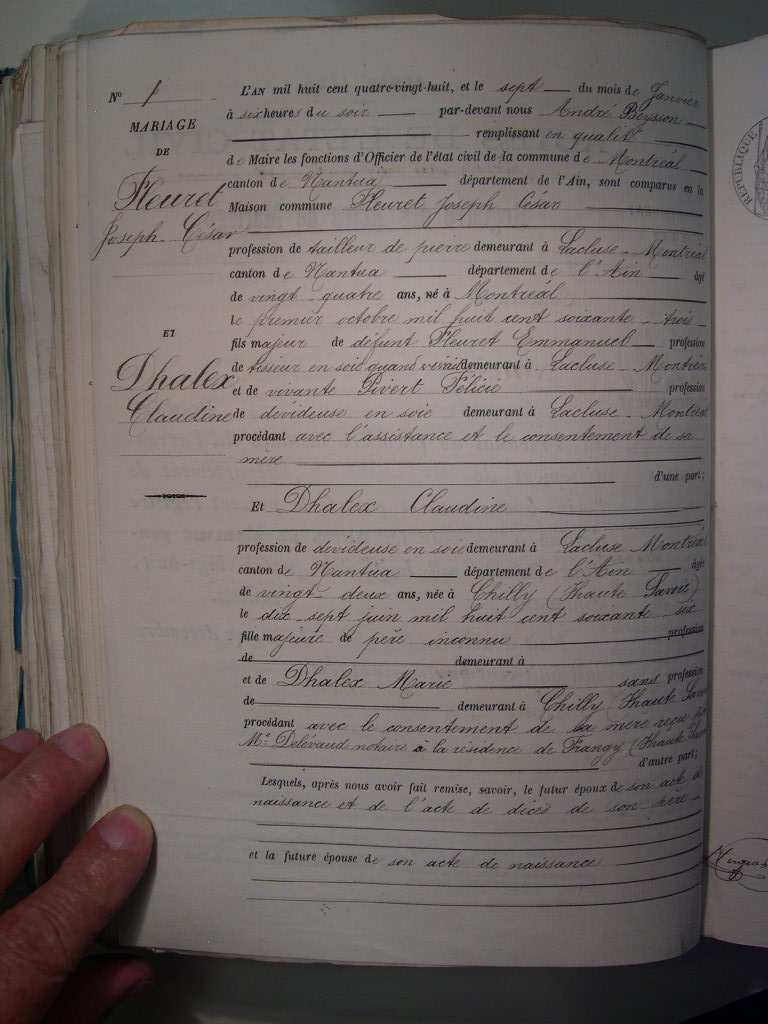 N° 1
MARIAGE
DE
Fleuret
Joseph César
ET
Dhalex
Claudine
L'AN mil huit cent quatre-vingt-huit, et le sept du mois de Janvier
à six heures du soir par-devant nous André Beyssion
remplissant en qualité
de Maire les fonctions d'Officier de l'état civil de la commune de Montréal
canton de Nantua département de l'Ain, sont comparus en la
Maison commune Fleuret Joseph César
profession de tailleur de pierre demeurant à Lacluse-Montréal
canton de Nantua département de l'Ain âgé
de vingt-quatre ans, né à Montréal
le premier octobre mil huit cent soixante-trois
fils majeur de défunt Fleuret Emmanuel profession
de tisseur en soie quand vivait demeurant à Lacluse-Montréal
et de vivante Pivert Félicie profession
de dévideuse en soie demeurant à Lacluse-Montréal
procédant avec l'assistance et le consentement de sa
mère
d'une part;
Et Dhalex Claudine
profession de dévideuse en soie demeurant à Lacluse Montréal
canton de Nantua département de l'Ain âgée
de vingt-deux ans, née à Chilly (Haute Savoie)
le dix-sept juin mil huit cent soixante-six
fille majeure de père inconnu profession
de demeurant à
et de Dhalex Marie sans profession
de demeurant à Chilly Haute Savoie
procédant avec le consentement de sa mère reçu par
Me Delévaud notaire à la résidence de Frangy (Haute Savoie)
d'autre part;
Lesquels, après nous avoir fait remise, savoir, le futur époux de son acte de
naissance et de l'acte de décès de son père
et la future épouse de son acte de naissance
RÉPUBLIQUE